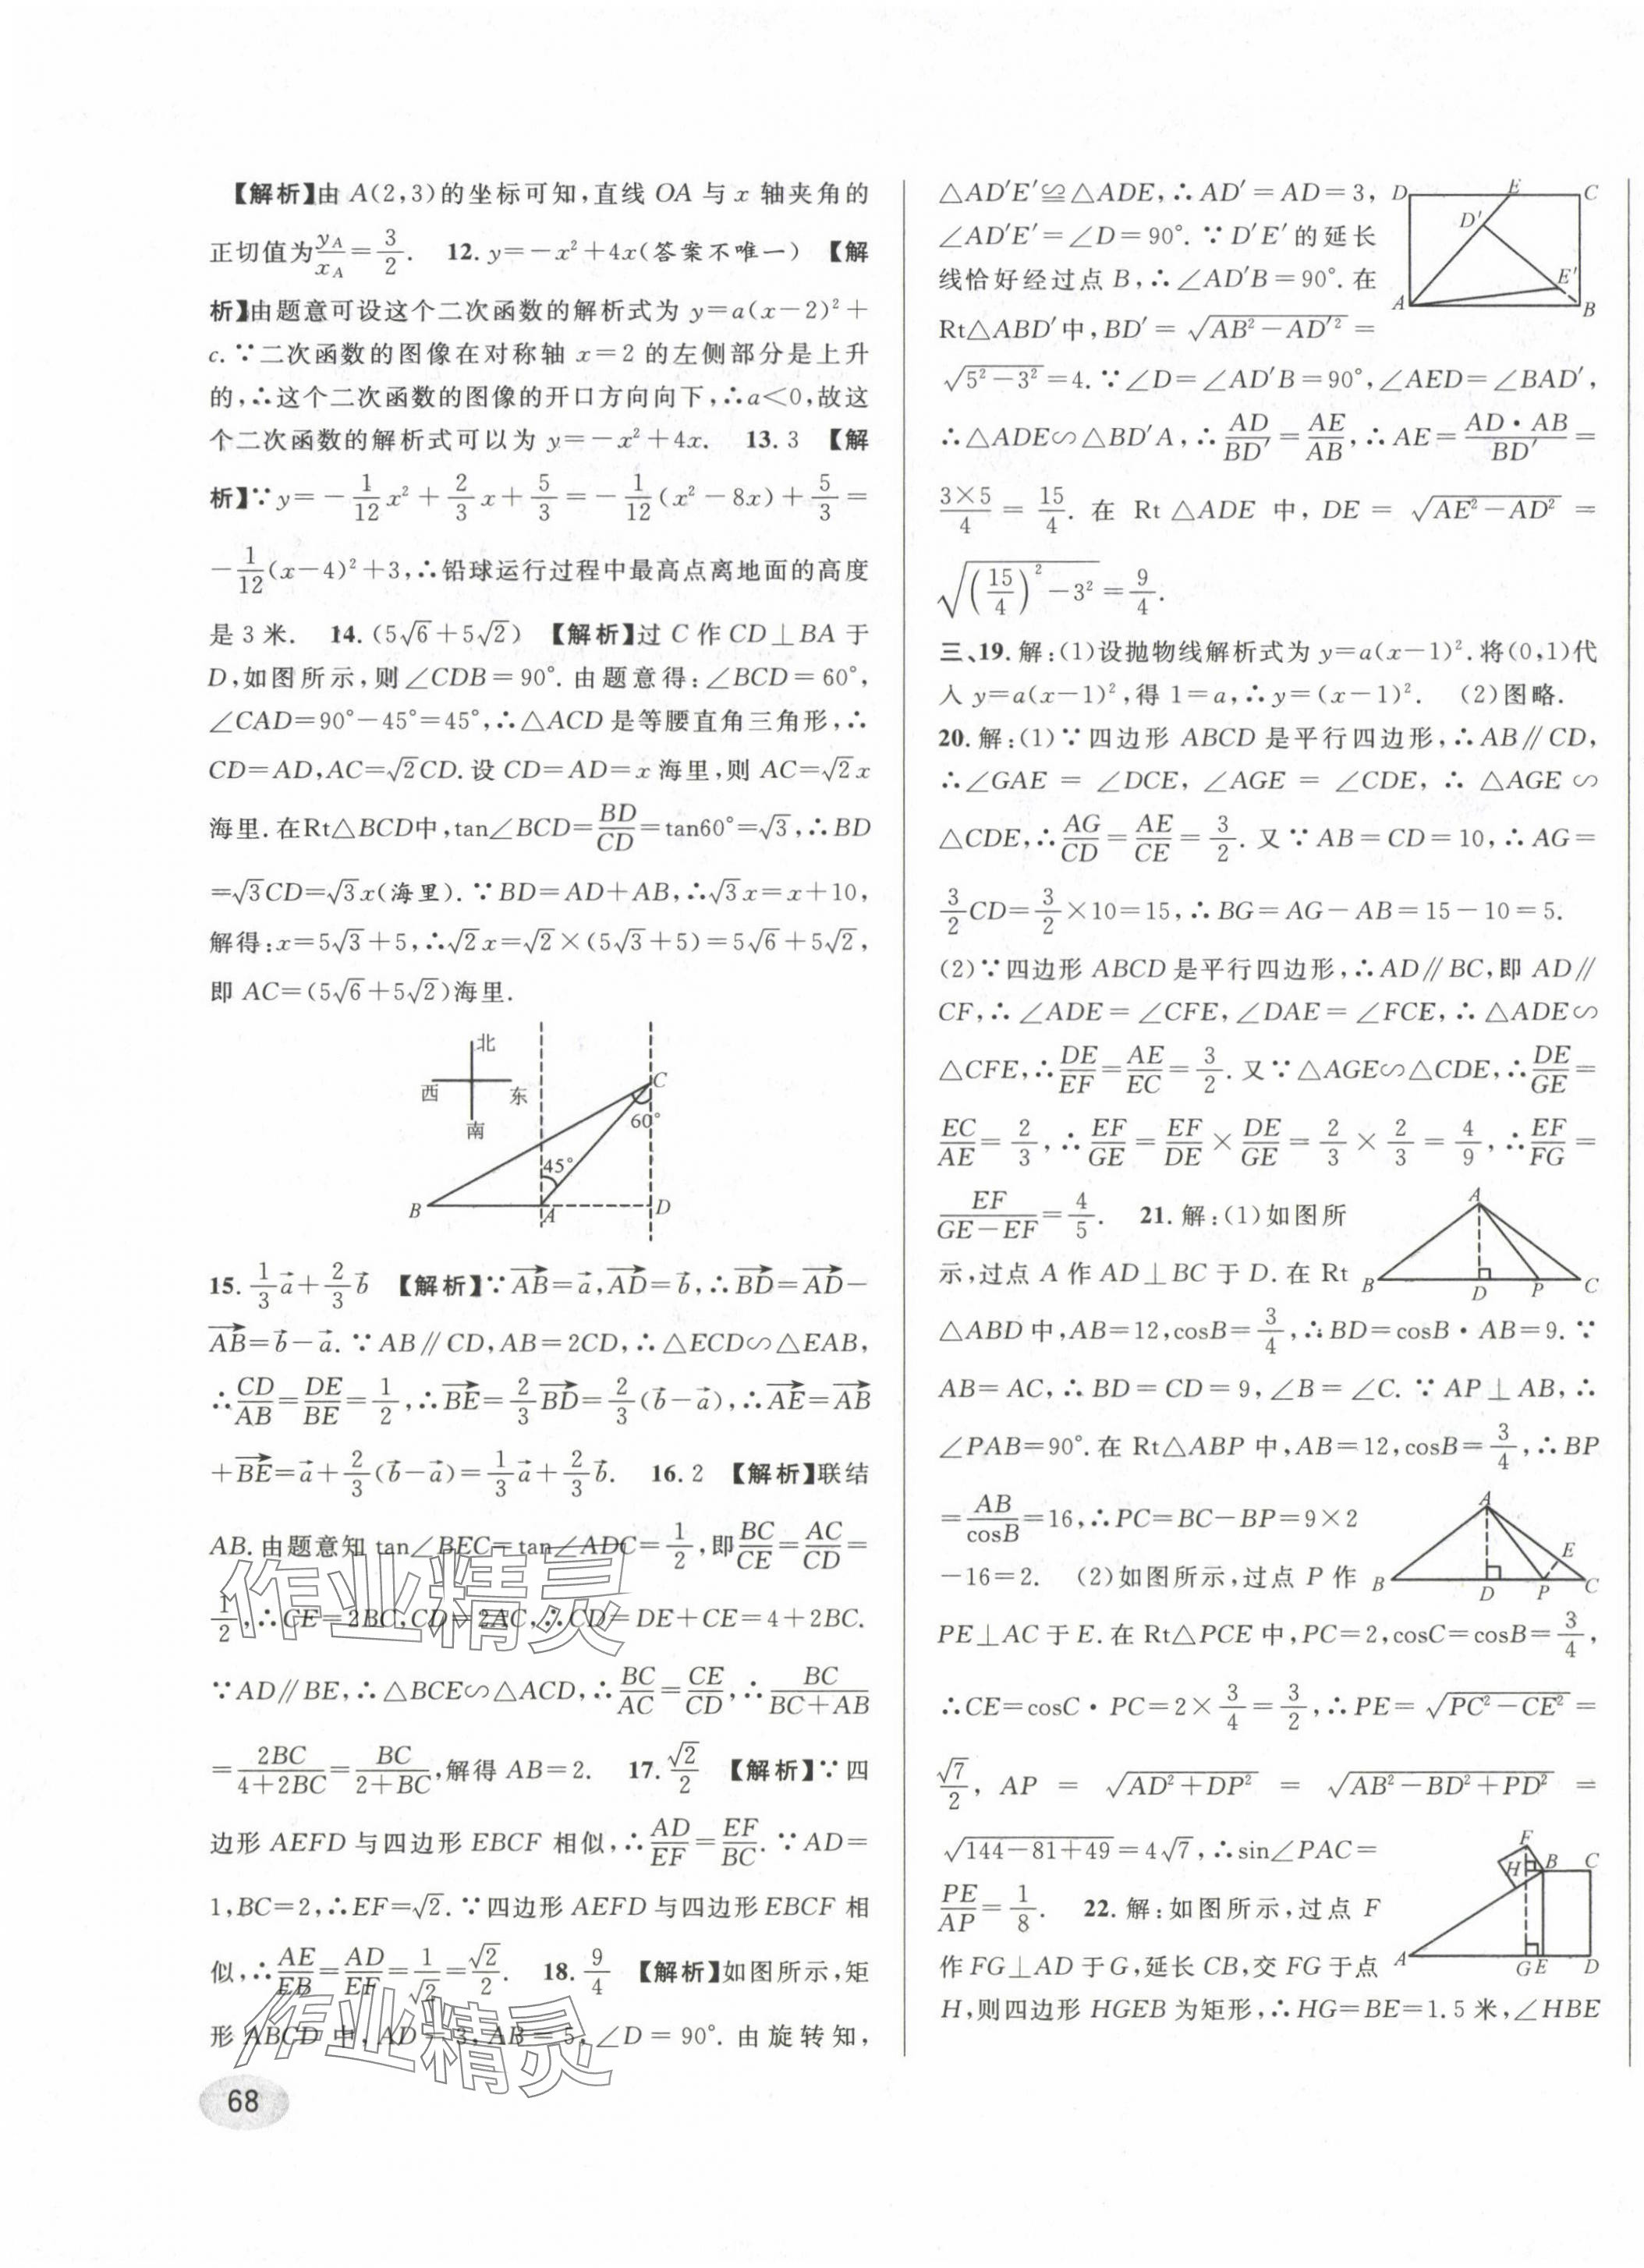 【解析】由 A(2,3)的坐标可知,直线 OA 与 x 轴夹角的
正切值为 y_A/x_A = 3/2. 12. y=-x²+4x(答案不唯一) 【解
析】由题意可设这个二次函数的解析式为 y=a(x-2)²+
c.∵二次函数的图像在对称轴 x=2 的左侧部分是上升
的,∴这个二次函数的图像的开口方向向下,∴a<0,故这
个二次函数的解析式可以为 y=-x²+4x. 13. 3 【解
析】∵y=-1/12 x²+2/3 x+5/3=-1/12(x²-8x)+5/3=
-1/12(x-4)²+3,∴铅球运行过程中最高点离地面的高度
是 3 米. 14. (5√6+5√2) 【解析】过 C 作 CD⊥BA 于
D,如图所示,则∠CDB=90°.由题意得:∠BCD=60°,
∠CAD=90°-45°=45°,∴△ACD 是等腰直角三角形,∴
CD=AD,AC=√2CD.设 CD=AD=x 海里,则 AC=√2x
海里.在Rt△BCD中,tan∠BCD=BD/CD=tan60°=√3,∴BD
=√3CD=√3x(海里).∵BD=AD+AB,∴√3x=x+10,
解得:x=5√3+5,∴√2x=√2×(5√3+5)=5√6+5√2,
即 AC=(5√6+5√2)海里.
北
西 东
南
C
60°
45°
B A D
15. 1/3 a⃗+2/3 b⃗ 【解析】∵AB⃗=a⃗,AD⃗=b⃗,∴BD⃗=AD⃗-
AB⃗=b⃗-a⃗.∵AB∥CD,AB=2CD,∴△ECD∽△EAB,
∴CD/AB=DE/BE=1/2,∴BE⃗=2/3 BD⃗=2/3(b⃗-a⃗),∴AE⃗=AB⃗
+BE⃗=a⃗+2/3(b⃗-a⃗)=1/3 a⃗+2/3 b⃗. 16. 2 【解析】联结
AB.由题意知 tan∠BEC=tan∠ADC=1/2,即BC/CE=AC/CD=
1/2,∴CE=2BC,CD=2AC,∴CD=DE+CE=4+2BC.
∵AD∥BE,∴△BCE∽△ACD,∴BC/AC=CE/CD,∴BC/(BC+AB)
=2BC/(4+2BC)=BC/(2+BC),解得 AB=2. 17. √2/2 【解析】∵四
边形 AEFD 与四边形 EBCF 相似,∴AD/EF=EF/BC.∵AD=
1,BC=2,∴EF=√2.∵四边形 AEFD 与四边形 EBCF 相
似,∴AE/EB=AD/EF=1/√2=√2/2. 18. 9/4 【解析】如图所示,矩
形 ABCD 中,AD=3,AB=5,∠D=90°.由旋转知,
作业精灵
作业精灵
68
△AD′E′≌△ADE,∴AD′=AD=3,
∠AD′E′=∠D=90°.∵D′E′的延长
线恰好经过点 B,∴∠AD′B=90°.在
Rt△ABD′中,BD′=√(AB²-AD′²)=
D E C
D′
E′
A B
√(5²-3²)=4.∵∠D=∠AD′B=90°,∠AED=∠BAD′,
∴△ADE∽△BD′A,∴AD/BD′=AE/AB,∴AE=AD·AB/BD′=
3×5/4=15/4.在 Rt△ADE 中,DE=√(AE²-AD²)=
√((15/4)²-3²)=9/4.
三、19.解:(1)设抛物线解析式为 y=a(x-1)².将(0,1)代
入 y=a(x-1)²,得 1=a,∴y=(x-1)². (2)图略.
20.解:(1)∵四边形 ABCD 是平行四边形,∴AB∥CD,
∴∠GAE=∠DCE,∠AGE=∠CDE,∴△AGE∽
△CDE,∴AG/CD=AE/CE=3/2.又∵AB=CD=10,∴AG=
3/2 CD=3/2×10=15,∴BG=AG-AB=15-10=5.
(2)∵四边形 ABCD 是平行四边形,∴AD∥BC,即 AD∥
CF,∴∠ADE=∠CFE,∠DAE=∠FCE,∴△ADE∽
△CFE,∴DE/EF=AE/EC=3/2.又∵△AGE∽△CDE,∴DE/GE=
EC/AE=2/3,∴EF/GE=EF/DE×DE/GE=2/3×2/3=4/9,∴EF/FG=
EF/(GE-EF)=4/5. 21.解:(1)如图所
示,过点 A 作 AD⊥BC 于 D.在 Rt
A
B D P C
△ABD 中,AB=12,cosB=3/4,∴BD=cosB·AB=9.∵
AB=AC,∴BD=CD=9,∠B=∠C.∵AP⊥AB,∴
∠PAB=90°.在 Rt△ABP 中,AB=12,cosB=3/4,∴BP
=AB/cosB=16,∴PC=BC-BP=9×2
-16=2. (2)如图所示,过点 P 作
A
E
B D P C
PE⊥AC 于 E.在 Rt△PCE 中,PC=2,cosC=cosB=3/4,
∴CE=cosC·PC=2×3/4=3/2,∴PE=√(PC²-CE²)=
√7/2,AP=√(AD²+DP²)=√(AB²-BD²+PD²)=
√(144-81+49)=4√7,∴sin∠PAC=
PE/AP=1/8. 22.解:如图所示,过点 F
作 FG⊥AD 于 G,延长 CB,交 FG 于点
F
H B C
A G E D
H,则四边形 HGEB 为矩形,∴HG=BE=1.5 米,∠HBE